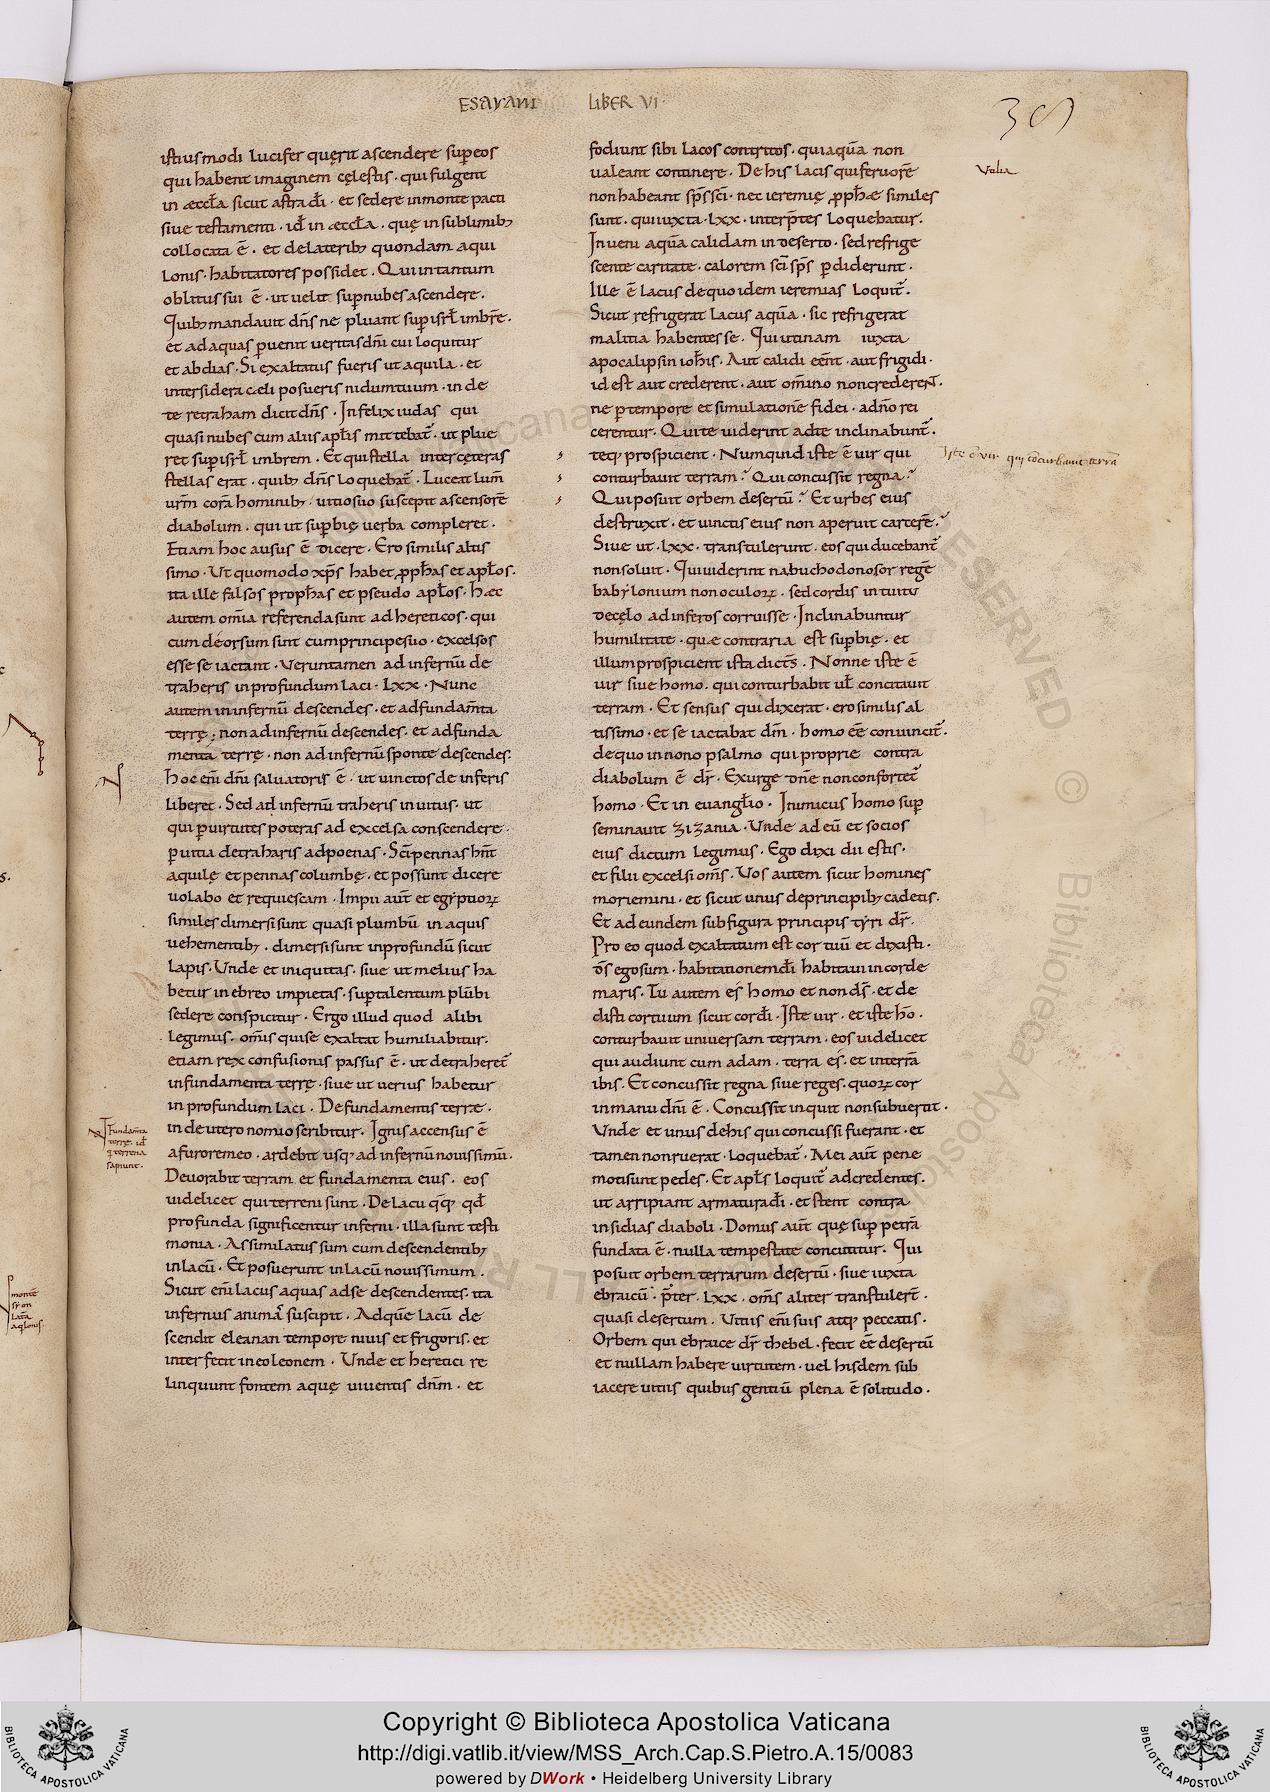 ESAYAM LIBER VI
istiusmodi lucifer quęrit ascendere sup eos
qui habent imaginem cęlestis · qui fulgent
in æccła sicut astra dī · et sedere in monte pacti
siue testamenti · id in æccła · quę in sublimib;
collocata ē · et de laterib; quondam aqui
lonis · habitatores possidet · Qui in tantum
oblitus sui ē · ut uelit sup nubes ascendere ·
Quib; mandauit dn̄s ne pluant sup isrł imbrē ·
et ad aquas puenit ueritas dn̄i cui loquitur
et abdias · Si exaltatus fueris ut aquila · et
inter sidera cæli posueris nidum tuum · inde
te retraham dicit dn̄s · Infelix iudas qui
quasi nubes cum aliis apłis mittebat̄ · ut plue
ret sup isrł imbrem · Et qui stella inter cęteras
stellas erat · quib; dn̄s loquebat̄ · Luceat lum̄
ur̄m corā hominib; · uitiosuo suscepit ascensorē
diabolum · qui ut supbię uerba compleret ·
Etiam hoc ausus ē dicere · Ero similis altis
simo · Ut quomodo xp̄s habet pph̄as et apłos ·
ita ille falsos proph̄as et pseudo apłos · Hæc
autem om̄ia referenda sunt ad hereticos · qui
cum deorsum sint cum principe suo · excelsos
esse se iactant · Veruntamen ad infernū de
traheris in profundum laci · LXX · Nunc
autem in infernū descendes · et ad fundam̄ta
terrę; non ad infernū descendes · et ad funda
menta terrę · non ad infernū sponte descendes ·
hoc enī dn̄i saluatoris ē · ut uinctos de inferis
liberet · Sed ad infernū traheris inuitus · ut
qui p uirtutes poteras ad excelsa conscendere ·
p uitia detraharis ad poenas · Sc̄i pennas hn̄t
aquilę et pennas columbę · et possunt dicere
uolabo et requiescam · Impii aut̄ et egyptioꝝ
similes dimersi sunt quasi plumbū in aquis
uehementib; · dimersi sunt in profundū sicut
lapis · Unde et iniquitas · siue ut melius ha
betur in ebreo impietas · sup talentum plūbi
sedere conspicitur · Ergo illud quod alibi
legimus · om̄is qui se exaltat humiliabitur ·
etiam rex confusionis passus ē · ut detraheret̄
in fundamenta terrę · siue ut uerius habetur
in profundum laci · De fundamentis terræ ·
in deuteronomio scribitur · Ignis accensus ē
a furore meo · ardebit usq; ad infernū nouissimū ·
Deuorabit terram et fundamenta eius · eos
uidelicet qui terreni sunt · De lacu q̄q; qd̄
profunda significentur inferni · illa sunt testi
monia · Assimilatus sum cum descendentib;
in lacū · Et posuerunt in lacū nouissimum ·
Sicut enī lacus aquas ad se descendentes · ita
infernus animā suscipit · Ad que lacū de
scendit eleanan tempore niuis et frigoris · et
interfecit in eo leonem · Unde et heretici re
linquunt fontem aquę uiuentis dn̄m · et
Fundam̄ta
terrę · id
q terrena
sapiunt ·
fodiunt sibi lacos contritos · qui aquā non
ualeant continere · De his lacis qui feruorē
non habeant sp̄s sc̄i · nec ieremię pph̄æ similes
sunt · qui iuxta · LXX · interp̄tes loquebatur ·
Inueni aquā calidam in deserto · sed refrige
scente caritate · calorem sc̄i sp̄s pdiderunt ·
Ille ē lacus de quo idem ieremias loquit̄ ·
Sicut refrigerat lacus aquā · sic refrigerat
malitia habentes se · Qui utinam iuxta
apocalipsin ioh̄is · Aut calidi eēnt · aut frigidi ·
id est aut crederent · aut om̄ino non crederent̄ ·
ne p tempore et simulationē fidei · a dn̄o rei
cerentur · Qui te uiderint ad te inclinabunt̄ ·
teq; prospicient · Numquid iste ē uir qui
conturbauit terram? Qui concussit regna?
Qui posuit orbem desertū? Et urbes eius
destruxit · et uinctis eius non aperuit carcerē?
Siue ut · LXX · transtulerunt · eos qui ducebant̄
non soluit · Qui uiderint nabuchodonosor regē
babylonium non oculoꝝ · sed cordis intuitu
de cęlo ad inferos corruisse · Inclinabuntur
humilitate · quæ contraria est supbię · et
illum prospicient ista dict̄s · Nonne iste ē
uir siue homo · qui conturbabit uł concitauit
terram · Et sensus qui dixerat · ero similis al
tissimo · et se iactabat dm̄ · homo eē conuincit̄ ·
de quo in nono psalmo qui proprie contra
diabolum ē dr̄ · Exurge dn̄e non confortet̄
homo · Et in euanglio · Inimicus homo sup
seminauit zizania · Unde ad eū et socios
eius dictum legimus · Ego dixi dii estis ·
et filii excelsi om̄s · Vos autem sicut homines
moriemini · et sicut unus de principib; cadetis ·
Et ad eundem sub figura principis tyri dr̄ ·
Pro eo quod exaltatum est cor tuū et dixisti ·
d̄s ego sum · habitationem dī habitaui in corde
maris · Tu autem es homo et non ds̄ · et de
disti cor tuum sicut cor dī · Iste uir · et iste hō ·
conturbauit uniuersam terram · eos uidelicet
qui audiunt cum adam · terra es · et in terrā
ibis · Et concussit regna siue reges · quoꝝ cor
in manu dn̄i ē · Concussit inquit non subuertit ·
Unde et unus de his qui concussi fuerant · et
tamen non ruerat · loquebat̄ · Mei aut̄ pene
moti sunt pedes · Et apłs loquit̄ ad credentes ·
ut arripiant armatura dī · et stent contra
insidias diaboli · Domus aut̄ quę sup petrā
fundata ē · nulla tempestate concutitur · Qui
posuit orbem terrarum desertū · siue iuxta
ebraicū · p̄ter · LXX · om̄s aliter transtulert̄ ·
quasi desertum · Vitiis enī suis atq; peccatis ·
Orbem qui ebraice dr̄ thebel · fecit eē desertū
et nullam habere uirtutem · uel hisdem sub
iacere uitiis quibus gentiū plena ē solitudo ·
Iste ē uir qui cōturbauit terrā
montē
syon
latā
aqlonis ·
Copyright © Biblioteca Apostolica Vaticana
http://digi.vatlib.it/view/MSS_Arch.Cap.S.Pietro.A.15/0083
powered by DWork • Heidelberg University Library
BIBLIOTECA APOSTOLICA VATICANA
BIBLIOTECA APOSTOLICA VATICANA